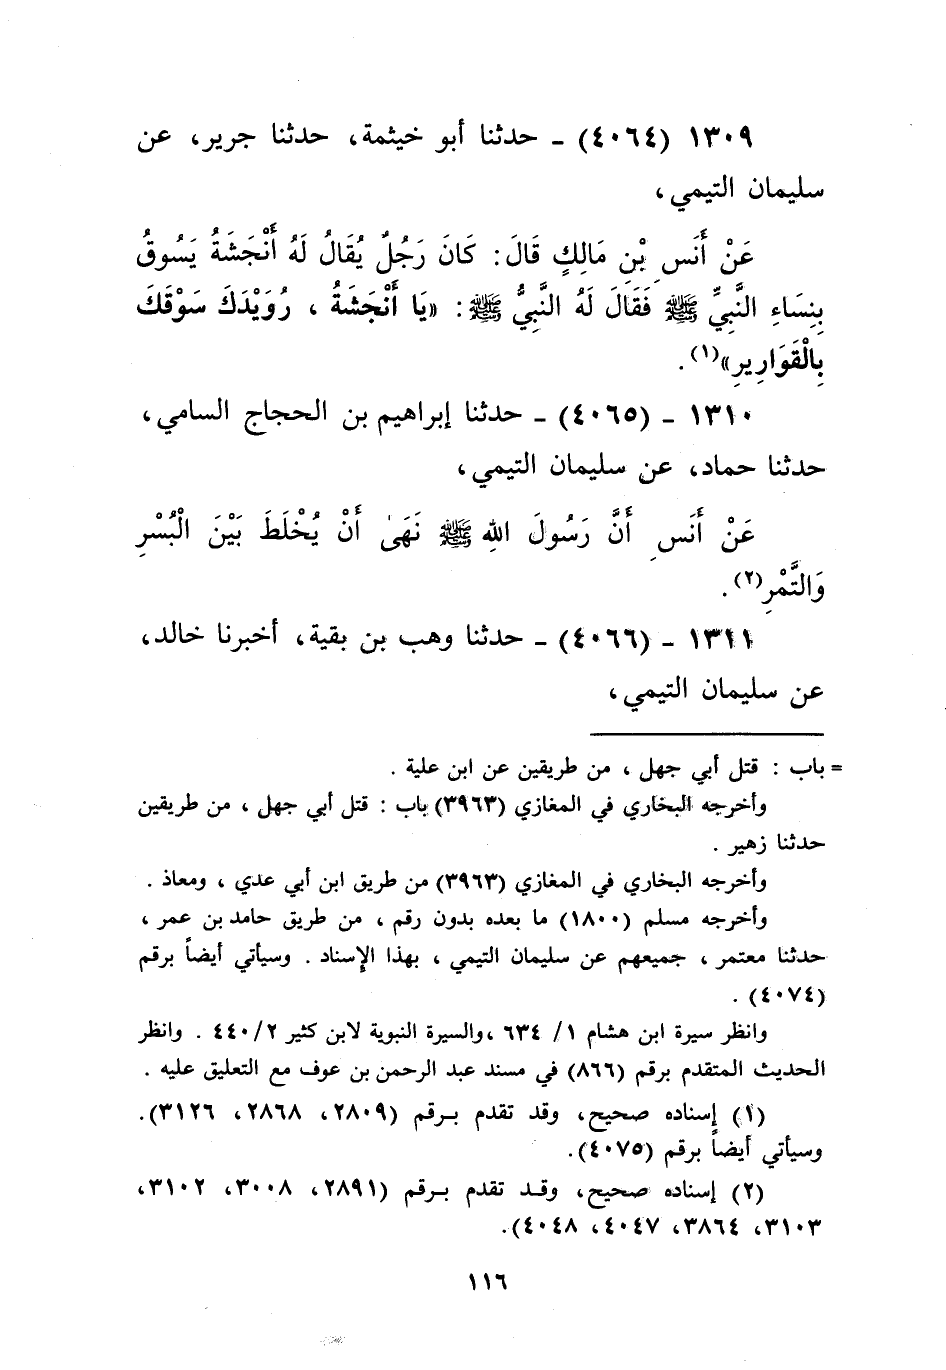 ١٣٠٩ (٤٠٦٤) ـ حدثنا أبو خيثمة، حدثنا جرير، عن
سليمان التيمي،
عَنْ أَنَسِ بْنِ مَالِكٍ قَالَ: كَانَ رَجُلٌ يُقَالُ لَهُ أَنْجَشَةُ يَسُوقُ
بِنِسَاءِ النَّبِيِّ ﷺ فَقَالَ لَهُ النَّبِيُّ ﷺ: «يَا أَنْجَشَةُ ، رُوَيْدَكَ سَوْقَكَ
بِالْقَوَارِيرِ»(١).
١٣١٠ ـ (٤٠٦٥) ـ حدثنا إبراهيم بن الحجاج السامي،
حدثنا حماد، عن سليمان التيمي،
عَنْ أَنَسٍ أَنَّ رَسُولَ اللهِ ﷺ نَهَىٰ أَنْ يُخْلَطَ بَيْنَ الْبُسْرِ
وَالتَّمْرِ(٢).
١٣١١ ـ (٤٠٦٦) ـ حدثنا وهب بن بقية، أخبرنا خالد،
عن سليمان التيمي،
= باب : قتل أبي جهل ، من طريقين عن ابن علية .
وأخرجه البخاري في المغازي (٣٩٦٣) باب : قتل أبي جهل ، من طريقين
حدثنا زهير .
وأخرجه البخاري في المغازي (٣٩٦٣) من طريق ابن أبي عدي ، ومعاذ .
وأخرجه مسلم (١٨٠٠) ما بعده بدون رقم ، من طريق حامد بن عمر ،
حدثنا معتمر ، جميعهم عن سليمان التيمي ، بهذا الإسناد . وسيأتي أيضاً برقم
(٤٠٧٤) .
وانظر سيرة ابن هشام ١/ ٦٣٤ ،والسيرة النبوية لابن كثير ٢/ ٤٤٠ . وانظر
الحديث المتقدم برقم (٨٦٦) في مسند عبد الرحمن بن عوف مع التعليق عليه .
(١) إسناده صحيح، وقد تقدم برقم (٢٨٠٩، ٢٨٦٨، ٣١٢٦).
وسيأتي أيضاً برقم (٤٠٧٥).
(٢) إسناده صحيح، وقد تقدم برقم (٢٨٩١، ٣٠٠٨، ٣١٠٢،
٣١٠٣، ٣٨٦٤، ٤٠٤٧، ٤٠٤٨).
١١٦